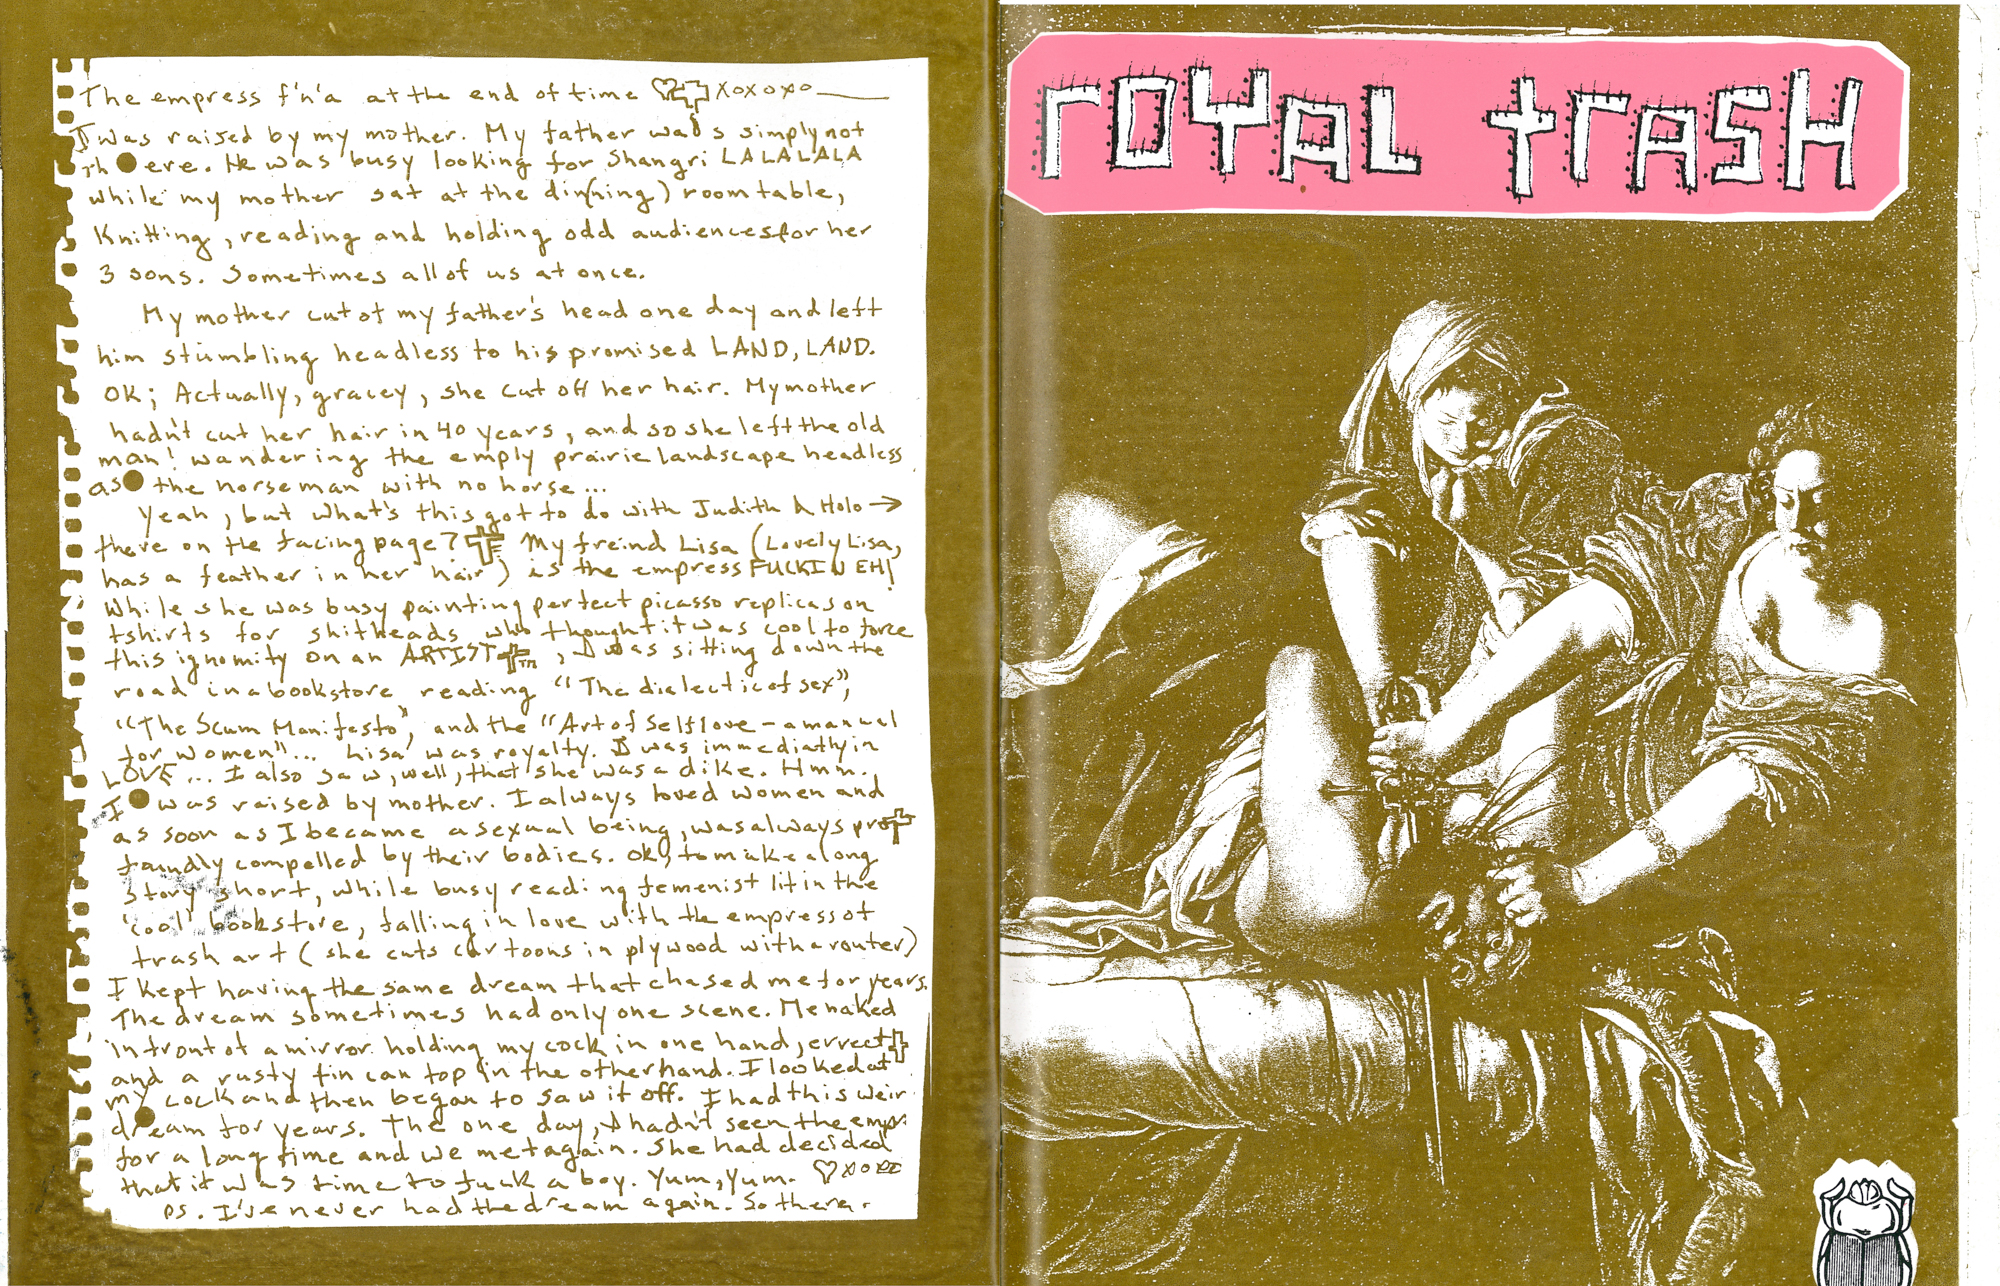 The empress f'n'a at the end of time ♡ xoxoxo
I was raised by my mother. My father was simply not
There. He was busy looking for Shangri LALALALA
while my mother sat at the din(ning) room table,
Knitting, reading and holding odd audiences for her
3 sons. Sometimes all of us at once.
My mother cut of my father's head one day and left
him stumbling headless to his promised LAND, LAND.
OK; Actually, gracey, she cut off her hair. My mother
hadn't cut her hair in 40 years, and so she left the old
man! wandering the empty prairie landscape headless
as the horseman with no horse...
Yeah, but what's this got to do with Judith & Holo →
there on the facing page? My freind Lisa (Lovely Lisa,
has a feather in her hair) is the empress FUCKIN EH!
While she was busy painting perfect picasso replicas on
tshirts for shitheads who thought it was cool to force
this ignomity on an ARTIST TM, I was sitting down the
road in a bookstore reading "The dialectic of sex",
"The Scum Manifesto", and the "Art of Selflove - a manual
for women"... Lisa was royalty. I was immediatly in
LOVE... I also saw, well, that she was a dike. Hmm.
I was raised by mother. I always loved women and
as soon as I became a sexual being, was always pro
foundly compelled by their bodies. ok, to make a long
story short, while busy reading femenist lit in the
'cool' bookstore, falling in love with the empress of
trash art (she cuts cartoons in plywood with a router)
I kept having the same dream that chased me for years.
The dream sometimes had only one scene. Me naked
in front of a mirror holding my cock in one hand, errect
and a rusty tin can top in the other hand. I looked at
my cock and then began to saw it off. I had this weir
dream for years. The one day, I hadn't seen the empr
for a long time and we met again. She had decided
that it was time to fuck a boy. Yum, Yum. ♡ xoxo
ps. I've never had the dream again. So there.
royal trash